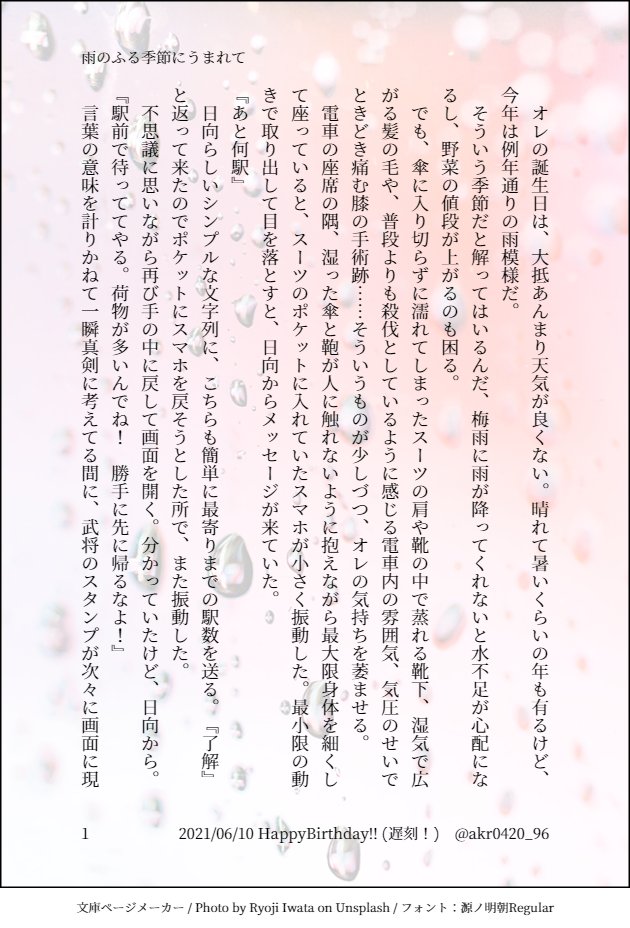 雨のふる季節にうまれて
　オレの誕生日は、大抵あんまり天気が良くない。晴れて暑いくらいの年も有るけど、
今年は例年通りの雨模様だ。
　そういう季節だと解ってはいるんだ、梅雨に雨が降ってくれないと水不足が心配にな
るし、野菜の値段が上がるのも困る。
　でも、傘に入り切らずに濡れてしまったスーツの肩や靴の中で蒸れる靴下、湿気で広
がる髪の毛や、普段よりも殺伐としているように感じる電車内の雰囲気、気圧のせいで
ときどき痛む膝の手術跡……そういうものが少しづつ、オレの気持ちを萎ませる。
　電車の座席の隅、湿った傘と鞄が人に触れないように抱えながら最大限身体を細くし
て座っていると、スーツのポケットに入れていたスマホが小さく振動した。最小限の動
きで取り出して目を落とすと、日向からメッセージが来ていた。
『あと何駅』
　日向らしいシンプルな文字列に、こちらも簡単に最寄りまでの駅数を送る。『了解』
と返って来たのでポケットにスマホを戻そうとした所で、また振動した。
　不思議に思いながら再び手の中に戻して画面を開く。分かっていたけど、日向から。
『駅前で待っててやる。荷物が多いんでね！　勝手に先に帰るなよ！』
　言葉の意味を計りかねて一瞬真剣に考えてる間に、武将のスタンプが次々に画面に現
1
2021/06/10 HappyBirthday!! (遅刻！)　@akr0420_96
文庫ページメーカー / Photo by Ryoji Iwata on Unsplash / フォント：源ノ明朝Regular